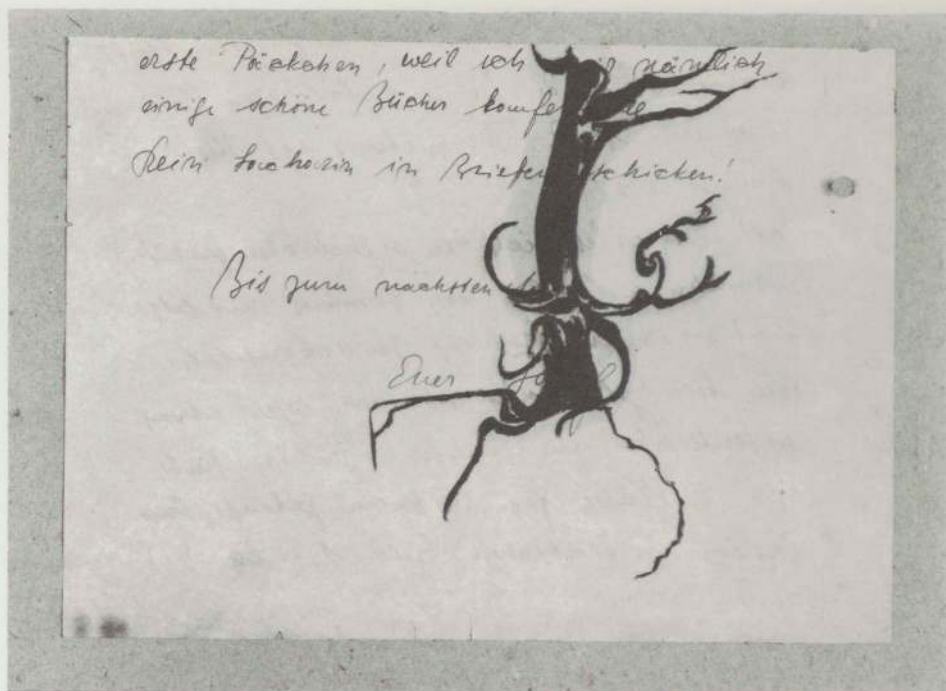 erste Päckchen, weil ich mir nämlich
einige schöne Bücher kaufen
Kein Sacharin in Briefen schicken!
Bis zum nächsten
Euer